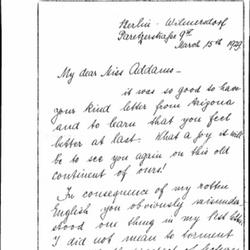 Berlin-Wilmersdorf
March 15th 1929
My dear Miss Addams -
it was so good to have
your kind letter from Arizona
and to learn that you feel
better at last. What a joy it will
be to see you again on this old
continent of ours!
In consequence of my rotten
English you obviously misunder-
stood one thing in my last
I did not mean to torment